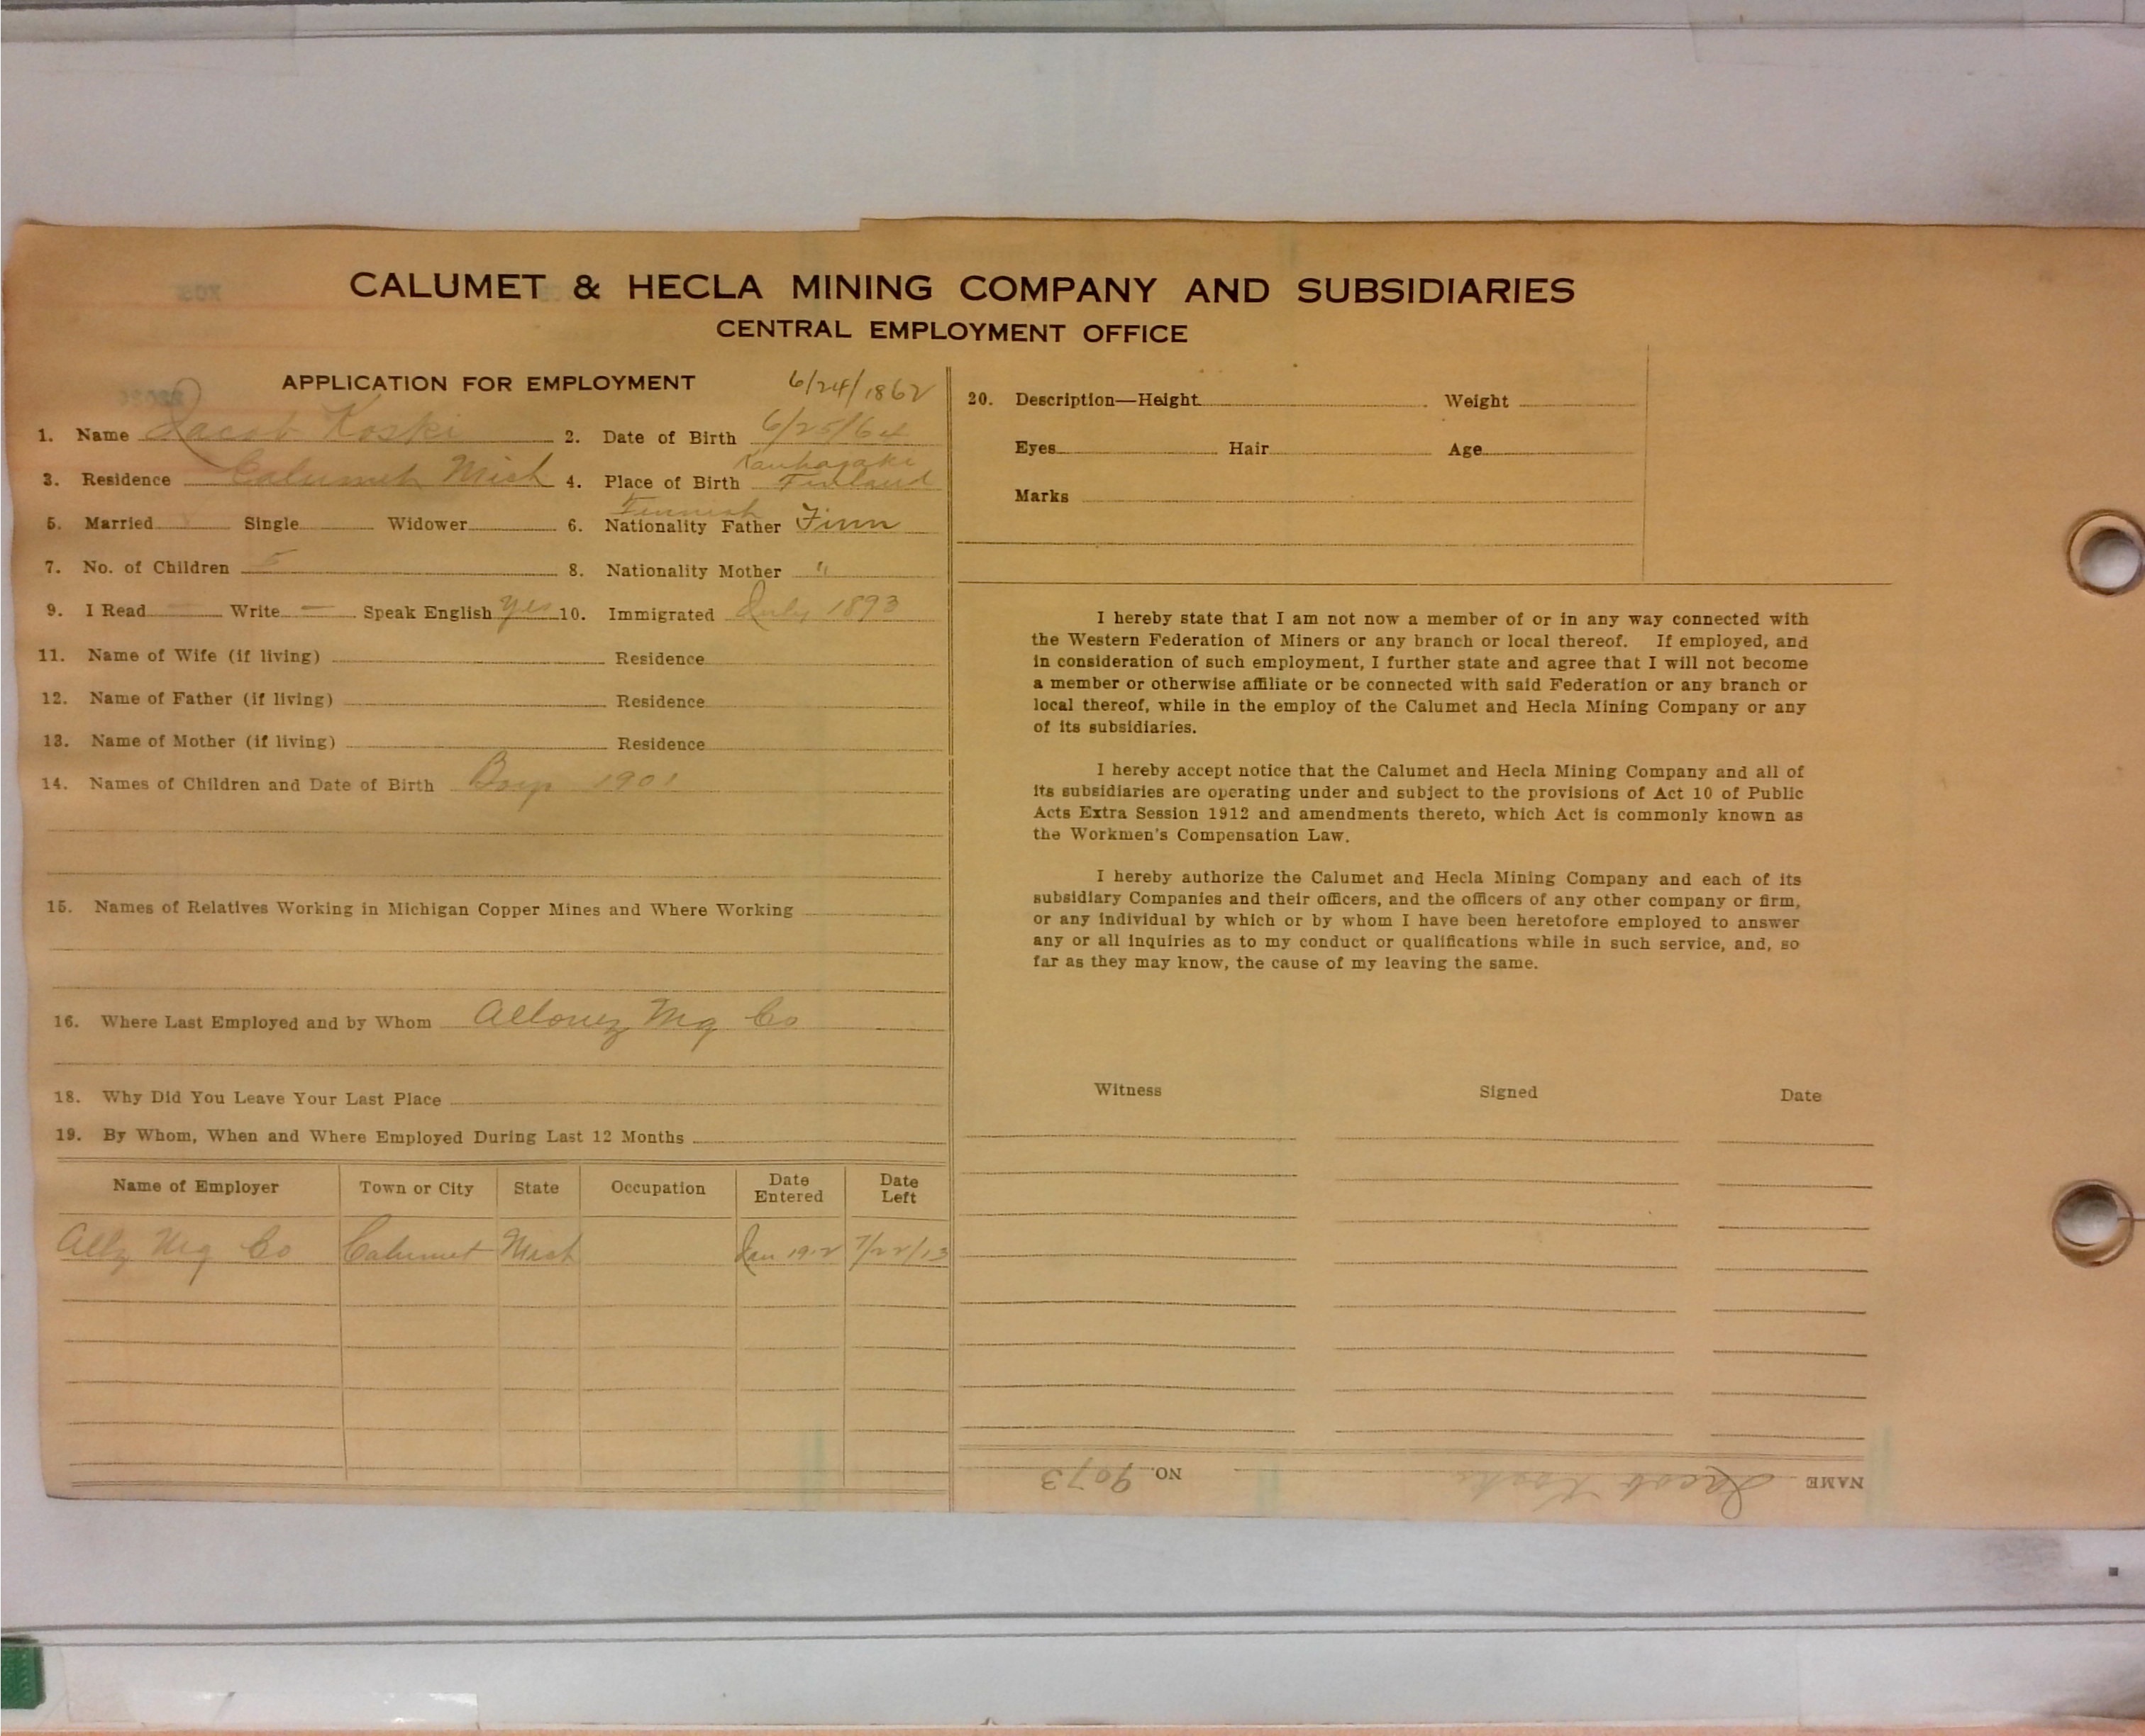 CALUMET & HECLA MINING COMPANY AND SUBSIDIARIES
CENTRAL EMPLOYMENT OFFICE
APPLICATION FOR EMPLOYMENT
6/24/1862
1. Name Jacob Koski 2. Date of Birth 6/25/64
Kauhajoki
3. Residence Calumet Mich 4. Place of Birth Finland
Finnish
5. Married Single Widower 6. Nationality Father Finn
7. No. of Children 5 8. Nationality Mother "
9. I Read — Write — Speak English yes 10. Immigrated July 1893
11. Name of Wife (if living) Residence
12. Name of Father (if living) Residence
13. Name of Mother (if living) Residence
14. Names of Children and Date of Birth Boy 1901
15. Names of Relatives Working in Michigan Copper Mines and Where Working
16. Where Last Employed and by Whom Allouez Mg Co
18. Why Did You Leave Your Last Place
19. By Whom, When and Where Employed During Last 12 Months
Name of Employer Town or City State Occupation Date Entered Date Left
Allz Mg Co Calumet Mich Jan 7/22/13
20. Description—Height Weight
Eyes Hair Age
Marks
I hereby state that I am not now a member of or in any way connected with
the Western Federation of Miners or any branch or local thereof. If employed, and
in consideration of such employment, I further state and agree that I will not become
a member or otherwise affiliate or be connected with said Federation or any branch or
local thereof, while in the employ of the Calumet and Hecla Mining Company or any
of its subsidiaries.
I hereby accept notice that the Calumet and Hecla Mining Company and all of
its subsidiaries are operating under and subject to the provisions of Act 10 of Public
Acts Extra Session 1912 and amendments thereto, which Act is commonly known as
the Workmen's Compensation Law.
I hereby authorize the Calumet and Hecla Mining Company and each of its
subsidiary Companies and their officers, and the officers of any other company or firm,
or any individual by which or by whom I have been heretofore employed to answer
any or all inquiries as to my conduct or qualifications while in such service, and, so
far as they may know, the cause of my leaving the same.
Witness Signed Date
NAME Jacob Koski NO. 9073